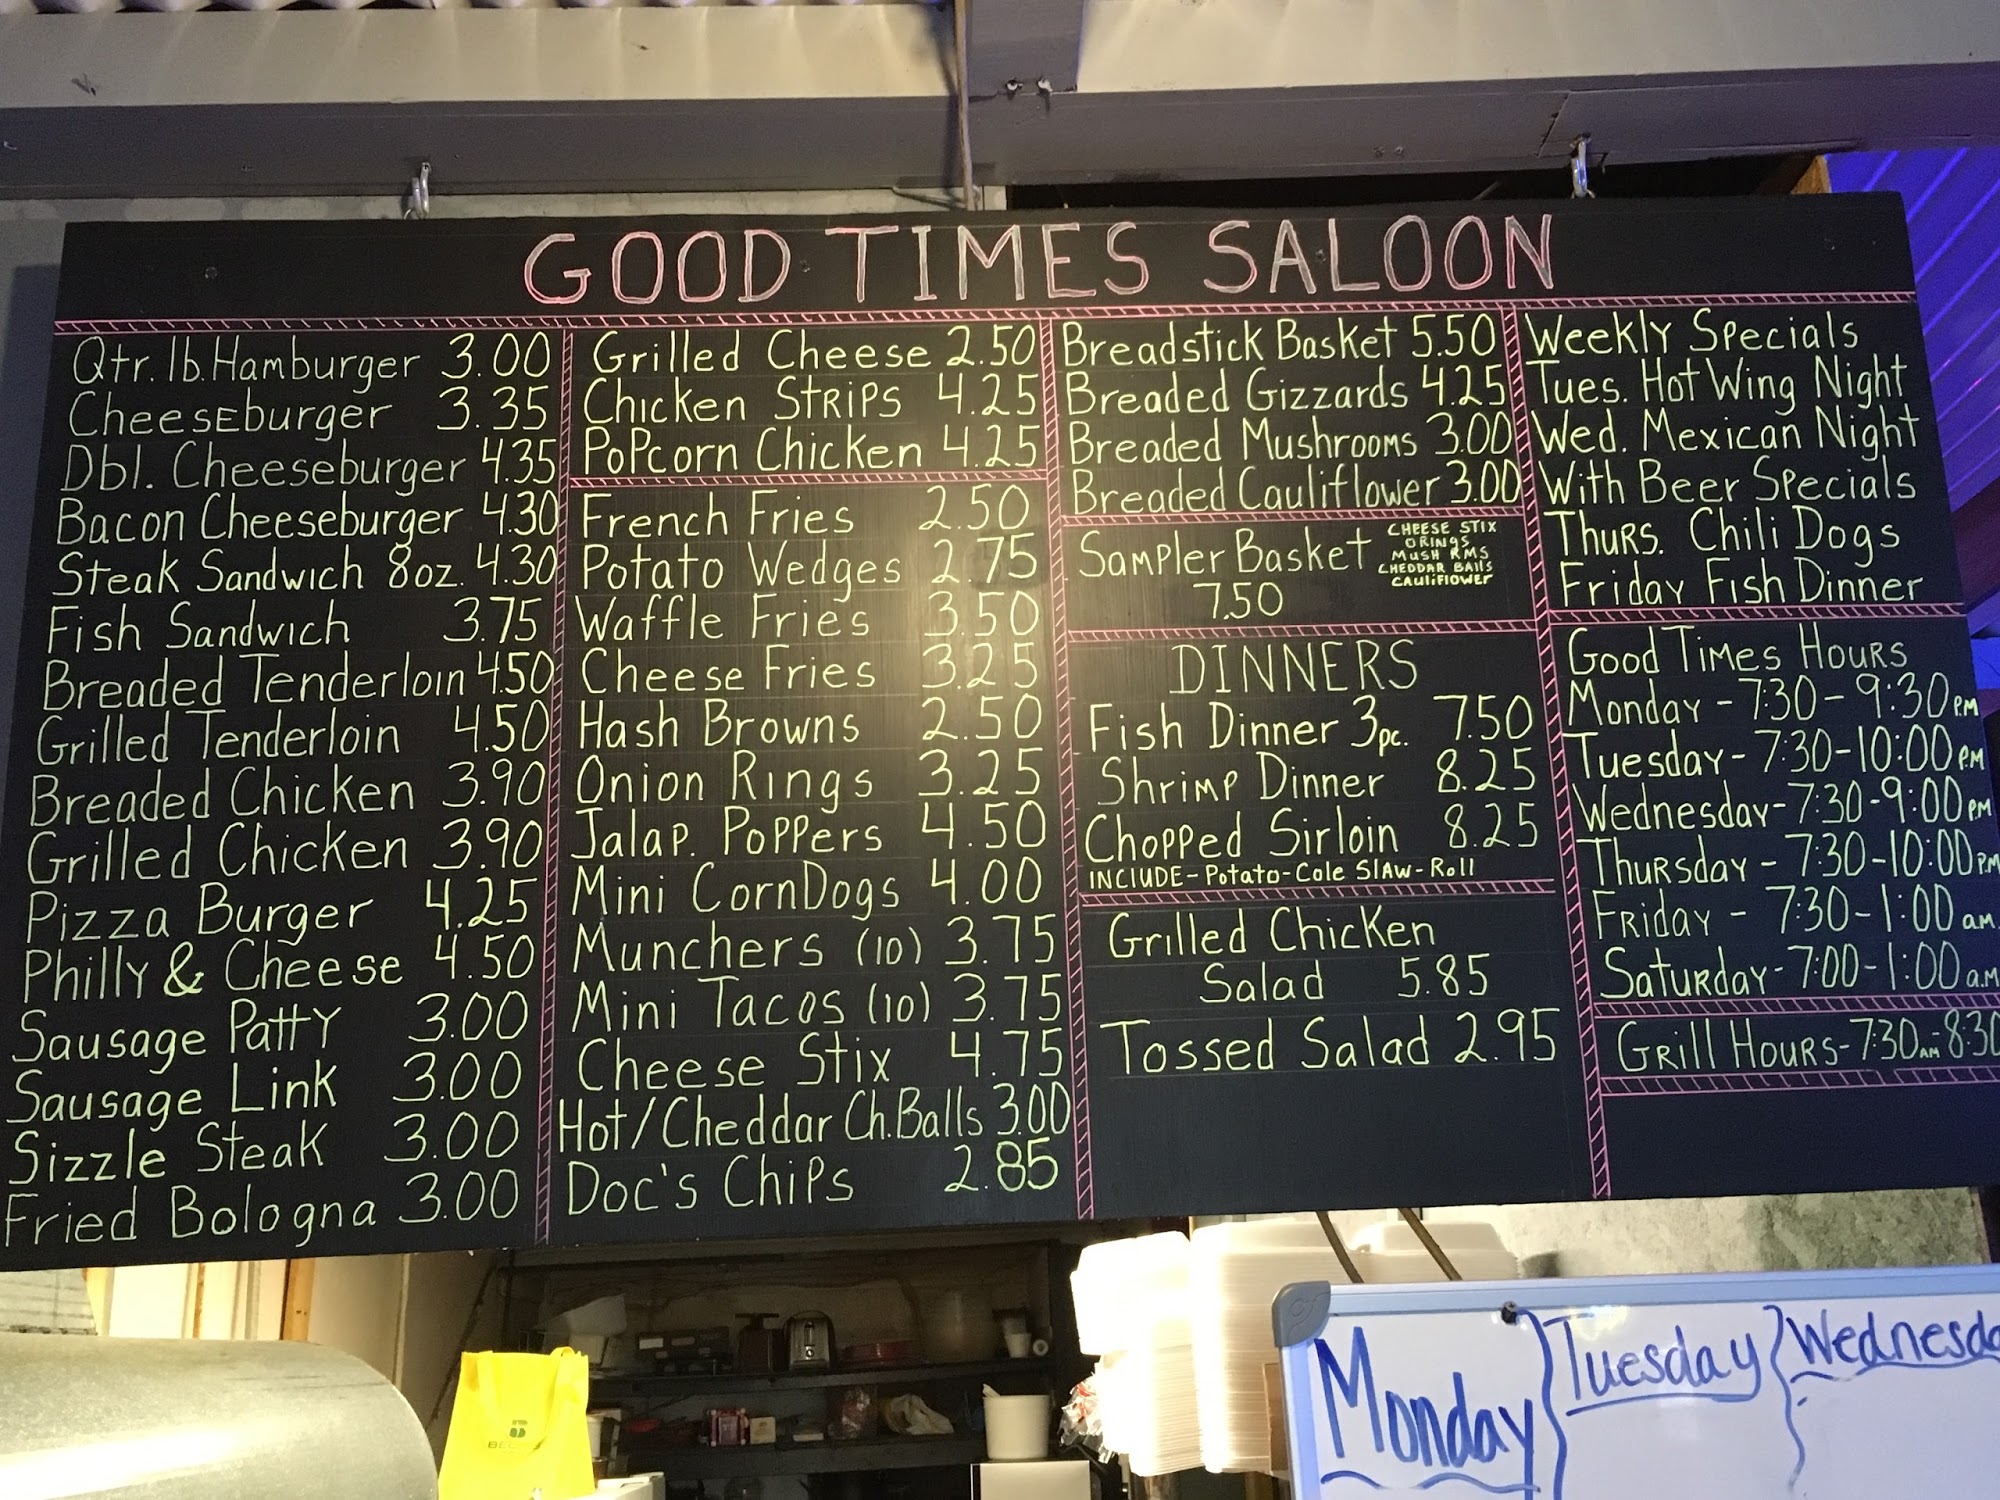 GOOD TIMES SALOON
Qtr. lb. Hamburger 3.00
Cheeseburger 3.35
Dbl. Cheeseburger 4.35
Bacon Cheeseburger 4.30
Steak Sandwich 8oz. 4.30
Fish Sandwich 3.75
Breaded Tenderloin 4.50
Grilled Tenderloin 4.50
Breaded Chicken 3.90
Grilled Chicken 3.90
Pizza Burger 4.25
Philly & Cheese 4.50
Sausage Patty 3.00
Sausage Link 3.00
Sizzle Steak 3.00
Fried Bologna 3.00
Grilled Cheese 2.50
Chicken Strips 4.25
Popcorn Chicken 4.25
French Fries 2.50
Potato Wedges 2.75
Waffle Fries 3.50
Cheese Fries 3.25
Hash Browns 2.50
Onion Rings 3.25
Jalap. Poppers 4.50
Mini CornDogs 4.00
Munchers (10) 3.75
Mini Tacos (10) 3.75
Cheese Stix 4.75
Hot/Cheddar Ch. Balls 3.00
Doc's Chips 2.85
Breadstick Basket 5.50
Breaded Gizzards 4.25
Breaded Mushrooms 3.00
Breaded Cauliflower 3.00
Sampler Basket
7.50
CHEESE STIX
O RINGS
MUSH RMS
CHEDDAR BAllS
CAULiFlOWER
DINNERS
Fish Dinner 3pc. 7.50
Shrimp Dinner 8.25
Chopped Sirloin 8.25
INCLUDE-Potato-Cole Slaw-Roll
Grilled Chicken
Salad 5.85
Tossed Salad 2.95
Weekly Specials
Tues. Hot Wing Night
Wed. Mexican Night
With Beer Specials
Thurs. Chili Dogs
Friday Fish Dinner
Good Times Hours
Monday - 7:30 - 9:30 P.M
Tuesday - 7:30-10:00 P.M
Wednesday-7:30-9:00 PM
Thursday - 7:30-10:00 P.M
Friday - 7:30-1:00 a.m.
Saturday-7:00-1:00 a.m
Grill Hours-7:30AM-8:30
Monday
Tuesday
Wednesda